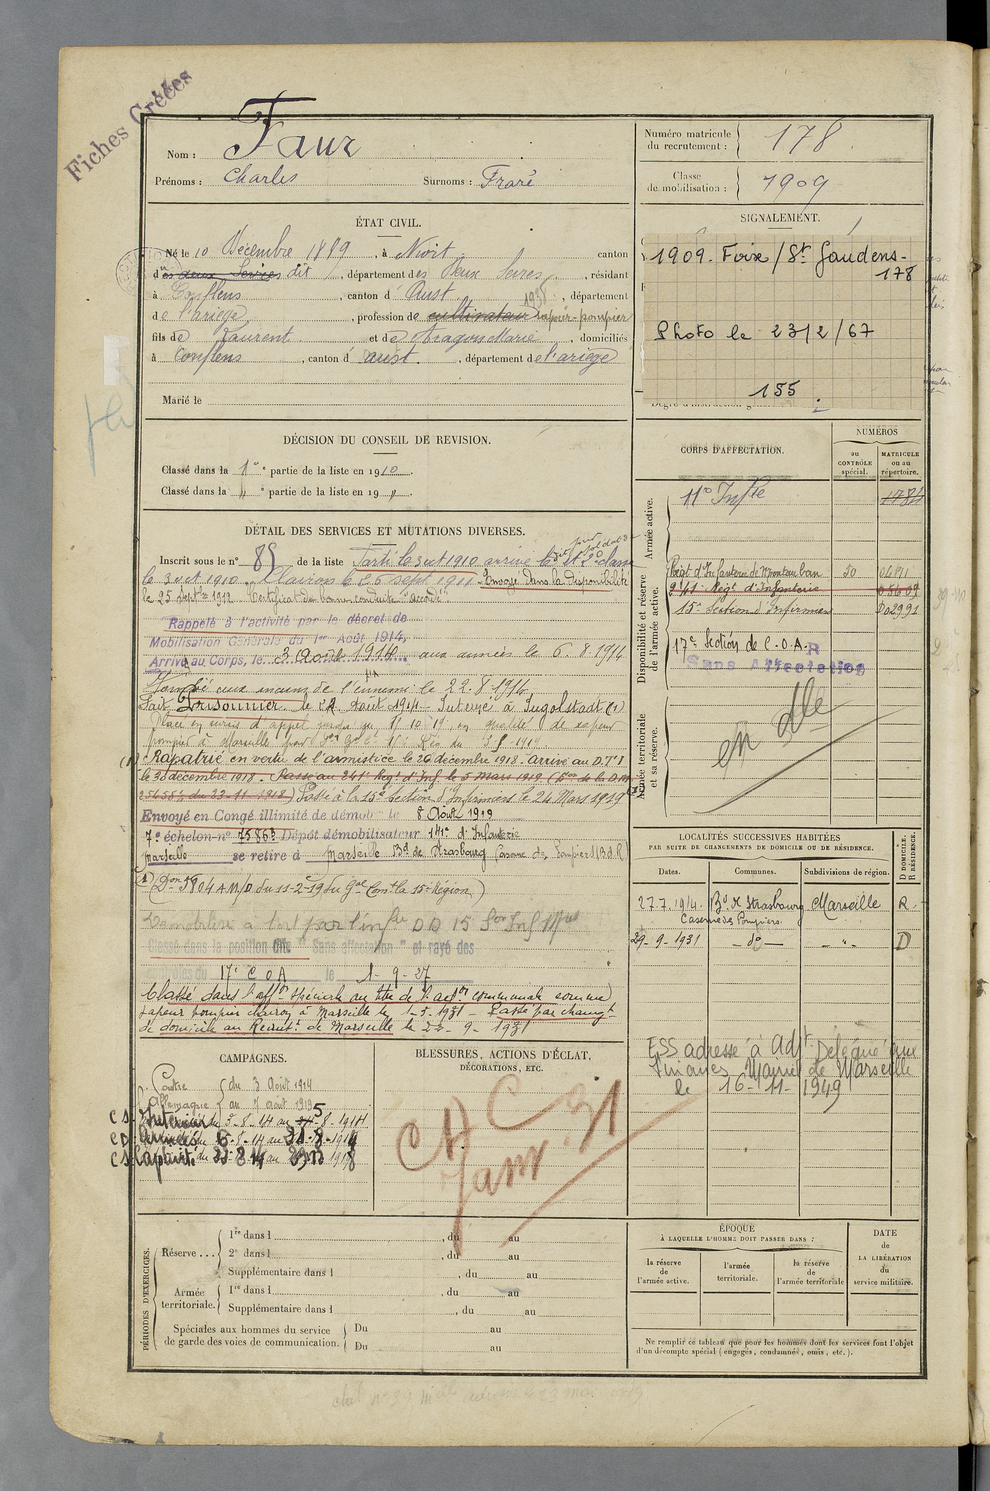 Fiches Créées
Nom : Faur
Prénoms : Charles Surnoms : Fraré
Numéro matricule du recrutement : 178
Classe de mobilisation : 1909
ÉTAT CIVIL.
Né le 10 Décembre 1889, à Niort canton
d es deux Sèvres dit, département des Deux Sèvres, résidant
à Conflens, canton d' Aust, département
de l'ariège, profession de cultivateur 1938 sapeur-pompier
fils de Laurent et de Aragon Marie, domiciliés
à Conflens, canton d' aust, département de l'ariège
Marié le
SIGNALEMENT.
1909. Foix / St Gaudens -
178
Photo le 23/2/67
155
DÉCISION DU CONSEIL DE REVISION.
Classé dans la 1re partie de la liste en 1910.
Classé dans la " e partie de la liste en 19 ".
DÉTAIL DES SERVICES ET MUTATIONS DIVERSES.
Inscrit sous le n° 85 de la liste Parti le 3 oct 1910 arrivé le dit jour soldat de 2e classe
le 3 oct 1910. Clairon le 26 sept 1911. Envoyé dans la disponibilité
le 25 septbre 1912 Certificat de bonne conduite "accordé"
Rappelé à l'activité par le décret de
Mobilisation Générale du 1er Août 1914,
Arrivé au Corps, le 3 Août 1914 aux armées le 6.8.1914
Tombé aux mains de l'ennemi le 22.8.1914
Fait Prisonnier le 22 août 1914 Interné à Ingolstadt (1)
Placé en sursis d'appel jusqu'au 11.10.19 en qualité de sapeur
pompier à Marseille
(1) Rapatrié en vertu de l'armistice le 26 décembre 1918. arrivé au D.T.I
le 30 décembre 1918. Passé au 241e Régt d'Inf. le 5 mars 1919
Passé à la 15e Section d'Infirmiers le 24 Mars 1919 (2)
Envoyé en Congé illimité de démob le 8 Août 1919
7e échelon n° 7586 Dépôt démobilisateur 141e d'Infanterie
Marseille se retire à Marseille Bd de Strasbourg Caserne des Pompiers (B.d.R)
(2) (Don 5804 A.M/D du 11-2-19 du Gal Comt la 15e Région)
Classé dans la position dite "Sans affectation" et rayé des
contrôles du 17e C O A le 1-9-27
Classé dans l'affon spéciale au titre de l'acton communale comme
sapeur pompier clairon à Marseille le 1-5-1931 - Passé par changt
de domicile au Recrutt de Marseille le 22-9-1931
CORPS D'AFFECTATION.
NUMÉROS
au CONTRÔLE spécial.
MATRICULE ou au répertoire.
Armée active.
11e Infrie 1784
Disponibilité et réserve de l'armée active.
Régt d'Infanterie de Montauban 50 04811
241e Régt d'Infanterie 05609
15e Section d'Infirmiers 002991
17e Section de C.O.A. R
Sans Affectation
Armée territoriale et sa réserve.
en dlle
LOCALITÉS SUCCESSIVES HABITÉES
PAR SUITE DE CHANGEMENTS DE DOMICILE OU DE RÉSIDENCE.
Dates. Communes. Subdivisions de région. D DOMICILE. R RÉSIDENCE.
27.7.1914. Bd de Strasbourg Marseille R.
Caserne des Pompiers
29-9-1931 - do - - " - D
ESS adressé à Adjt Délégué aux
Finances Mairie de Marseille
le 16-11-1949
CAMPAGNES.
Contre du 3 Août 1914
Allemagne au 7 août 1919
C S Intérieur du 3-8-14 au 5-8-1914
C D Armées du 6-8-14 au 21-8-1914
C S Captivité du 22-8-14 au 29 1918
BLESSURES, ACTIONS D'ÉCLAT,
DÉCORATIONS, ETC.
C A C
Janv. 31
PÉRIODES D'EXERCICES.
Réserve ... 1re dans l , du au
2e dans l , du au
Supplémentaire dans l , du au
Armée territoriale. 1re dans l , du au
Supplémentaire dans l , du au
Spéciales aux hommes du service de garde des voies de communication. Du au
Du au
ÉPOQUE
À LAQUELLE L'HOMME DOIT PASSER DANS :
la réserve de l'armée active.
l'armée territoriale.
la réserve de l'armée territoriale
DATE de LA LIBÉRATION du service militaire.
Ne remplir ce tableau que pour les hommes dont les services font l'objet
d'un décompte spécial (engagés, condamnés, omis, etc.).